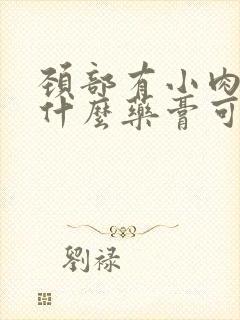 頚部有小肉
什麼藥膏可
劉禄